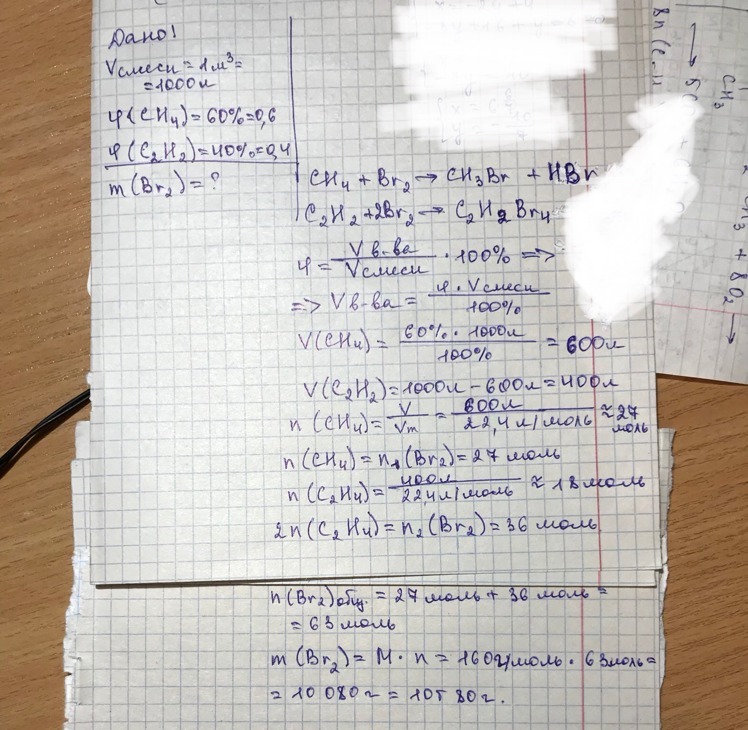 Дано!
Vсмеси = 1м³=
=1000л
φ(CH₄)=60%=0,6
φ(C₂H₂)=40%=0,4
m(Br₂)=?
CH₄ + Br₂ → CH₃Br + HBr
C₂H₂+2Br₂ → C₂H₂Br₄
φ = V в-ва / Vсмеси · 100% =>
=> V в-ва = φ · Vсмеси / 100%
V(CH₄) = 60% · 1000л / 100% = 600л
V(C₂H₂)=1000л-600л=400л
n(CH₄)= V / Vm = 600л / 22,4л/моль ≈ 27
моль
n(CH₄)=n₁(Br₂)=27 моль
n(C₂H₄)= 400л / 22,4л/моль ≈ 18моль
2n(C₂H₄)=n₂(Br₂)=36 моль
n(Br₂)общ. = 27 моль + 36 моль =
= 63 моль
m(Br₂)= M · n = 160г/моль · 63моль=
= 10 080г = 10т 80г.
CH₃
CH₃ + 8O₂ →